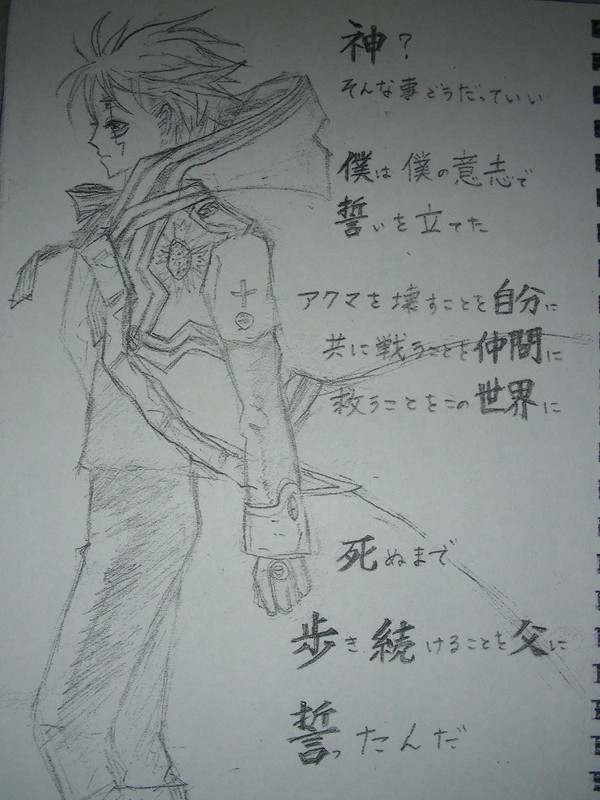 神?
そんな事どうだっていい
僕は僕の意志で
誓いを立てた
アクマを壊すことを自分に
共に戦うことを仲間に
救うことをこの世界に
死ぬまで
歩き続けることを父に
誓ったんだ